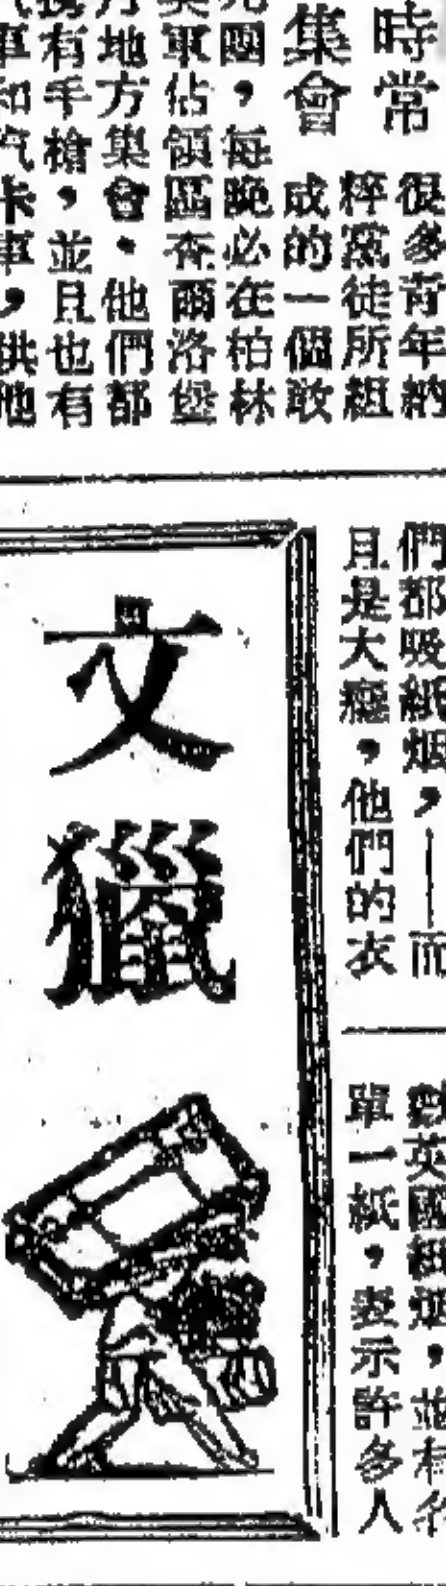 時常
集會
很多青年納
粹黨徒所組
成的一個敢
團，每晚必在柏林
美軍佔領區夏爾洛堡
地方集會。他們都
有手槍，並且也有
和汽卡車，供他
們都吸紙烟，——而
且是大癮，他們的衣
對英國
單一紙，表示許多人
文獵